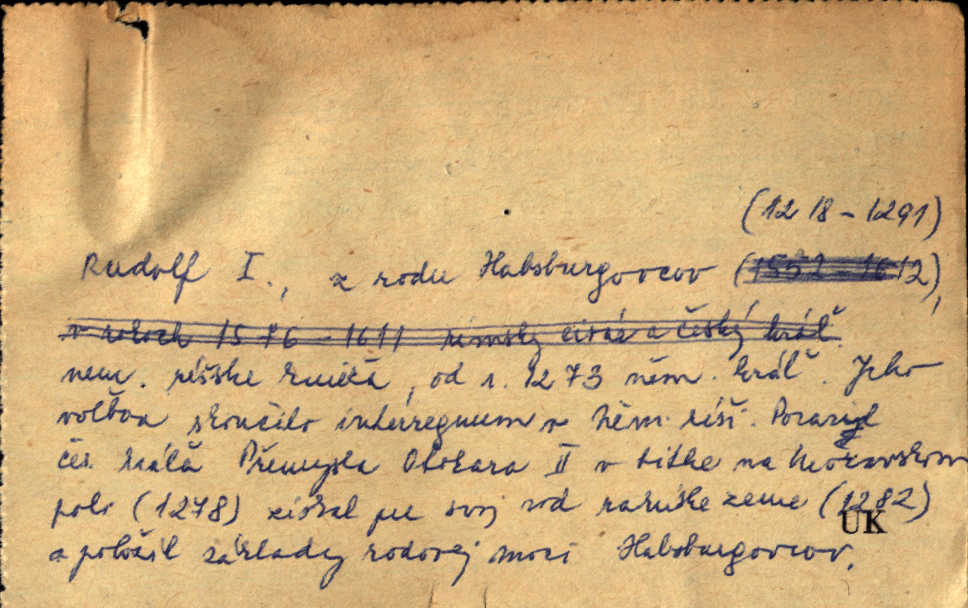 (1218 - 1291)
Rudolf I., z rodu Habsburgovcov (1552 - 1612),
v rokoch 1576 - 1611 rímsky cisár a český kráľ.
nem. ríšske knieža, od r. 1273 nem. kráľ. Jeho
voľbou skončilo interregnum v Nem. ríši. Porazil
čes. kráľa Přemysla Otokara II v bitke na Moravskom
poli (1278) získal pre svoj rod rakúske zeme (1282)
UK
a položil základy rodovej moci Habsburgovcov.